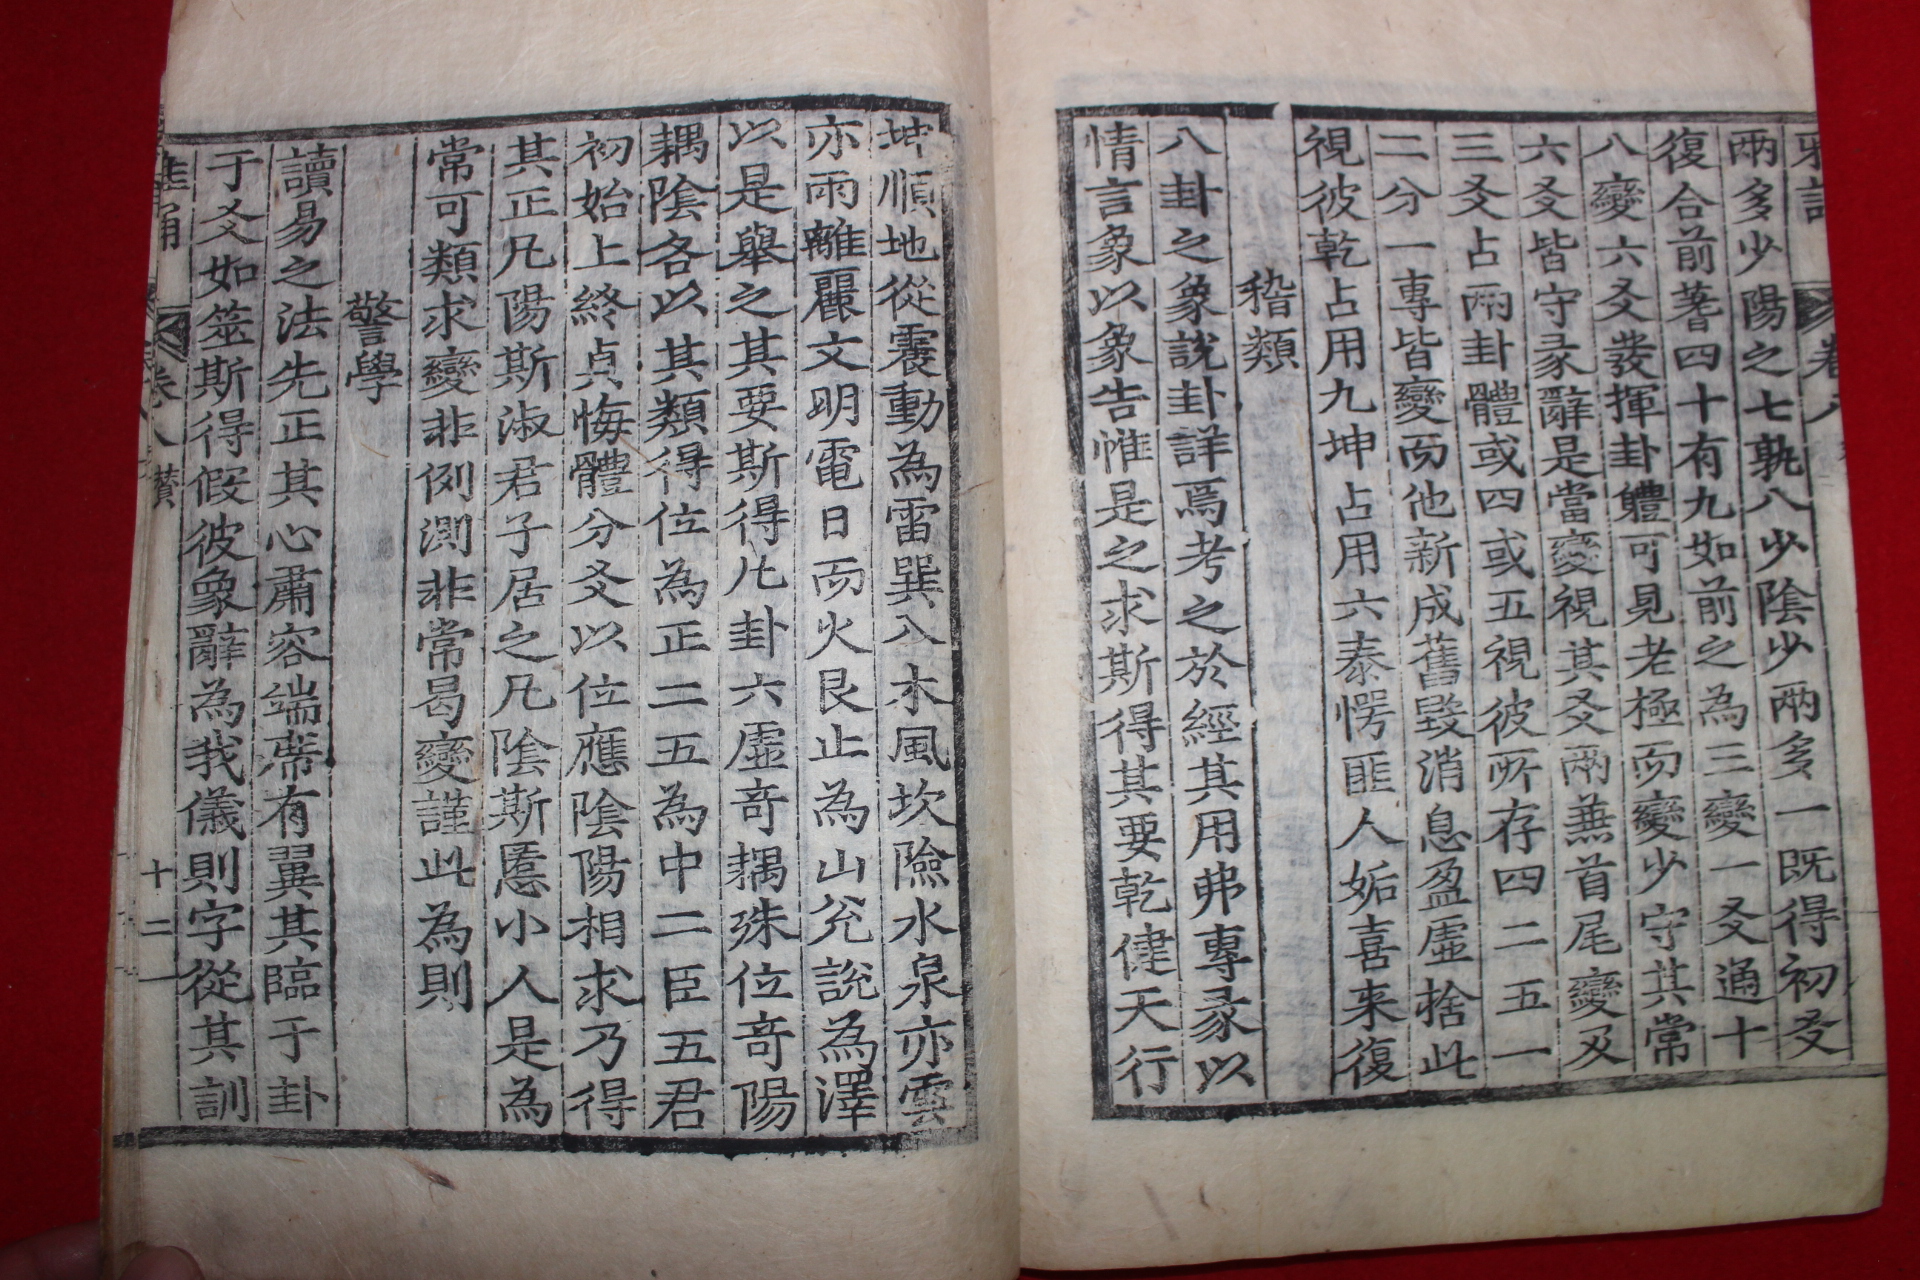 兩多少陽之七孰八少陰少兩多一既得初爻
復合前蓍四十有九如前之為三變一爻通十
八變六爻發揮卦體可見老極而變少守其常
六爻皆守彖辭是當變視其爻兩兼首尾變及
三爻占兩卦體或四或五視彼所存四二五一
二分一專皆變而他新成舊毀消息盈虛捨此
視彼乾占用九坤占用六泰愕匪人姤喜来復
稽類
八卦之象說卦詳焉考之於經其用弗專彖以
情言象以象告惟是之求斯得其要乾健天行
坤順地從震動為雷巽入木風坎險水泉亦雲
亦雨離麗文明電日而火艮止為山兊說為澤
以是舉之其要斯得凡卦六虛竒耦殊位竒陽
耦陰各以其類得位為正二五為中二臣五君
初始上終貞悔體分爻以位應陰陽相求乃得
其正凡陽斯淑君子居之凡陰斯慝小人是為
常可類求變非例測非常曷變謹此為則
警學
讀易之法先正其心肅容端席有翼其臨于卦
于爻如筮斯得假彼象辭為我儀則字從其訓
卷八 贊
十二